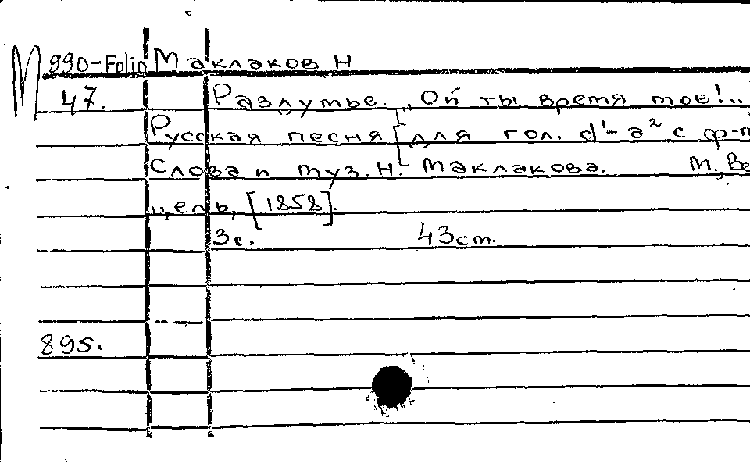 M 990-Folio Маклаков Н
47. Раздумье. „Ой ты время мое!..
Русская песня [для гол. d'-a² с ф-п
Слова и муз. Н. Маклакова. М, Ве
цель, [1858].
3с. 43cm.
895.